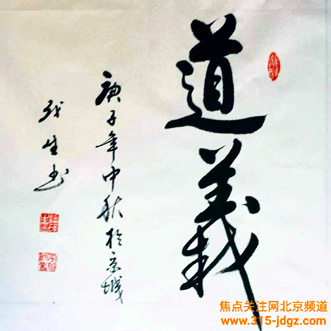 道義
庚子年中秋於京城
焦点关注网北京频道
www.315-jdgz.com